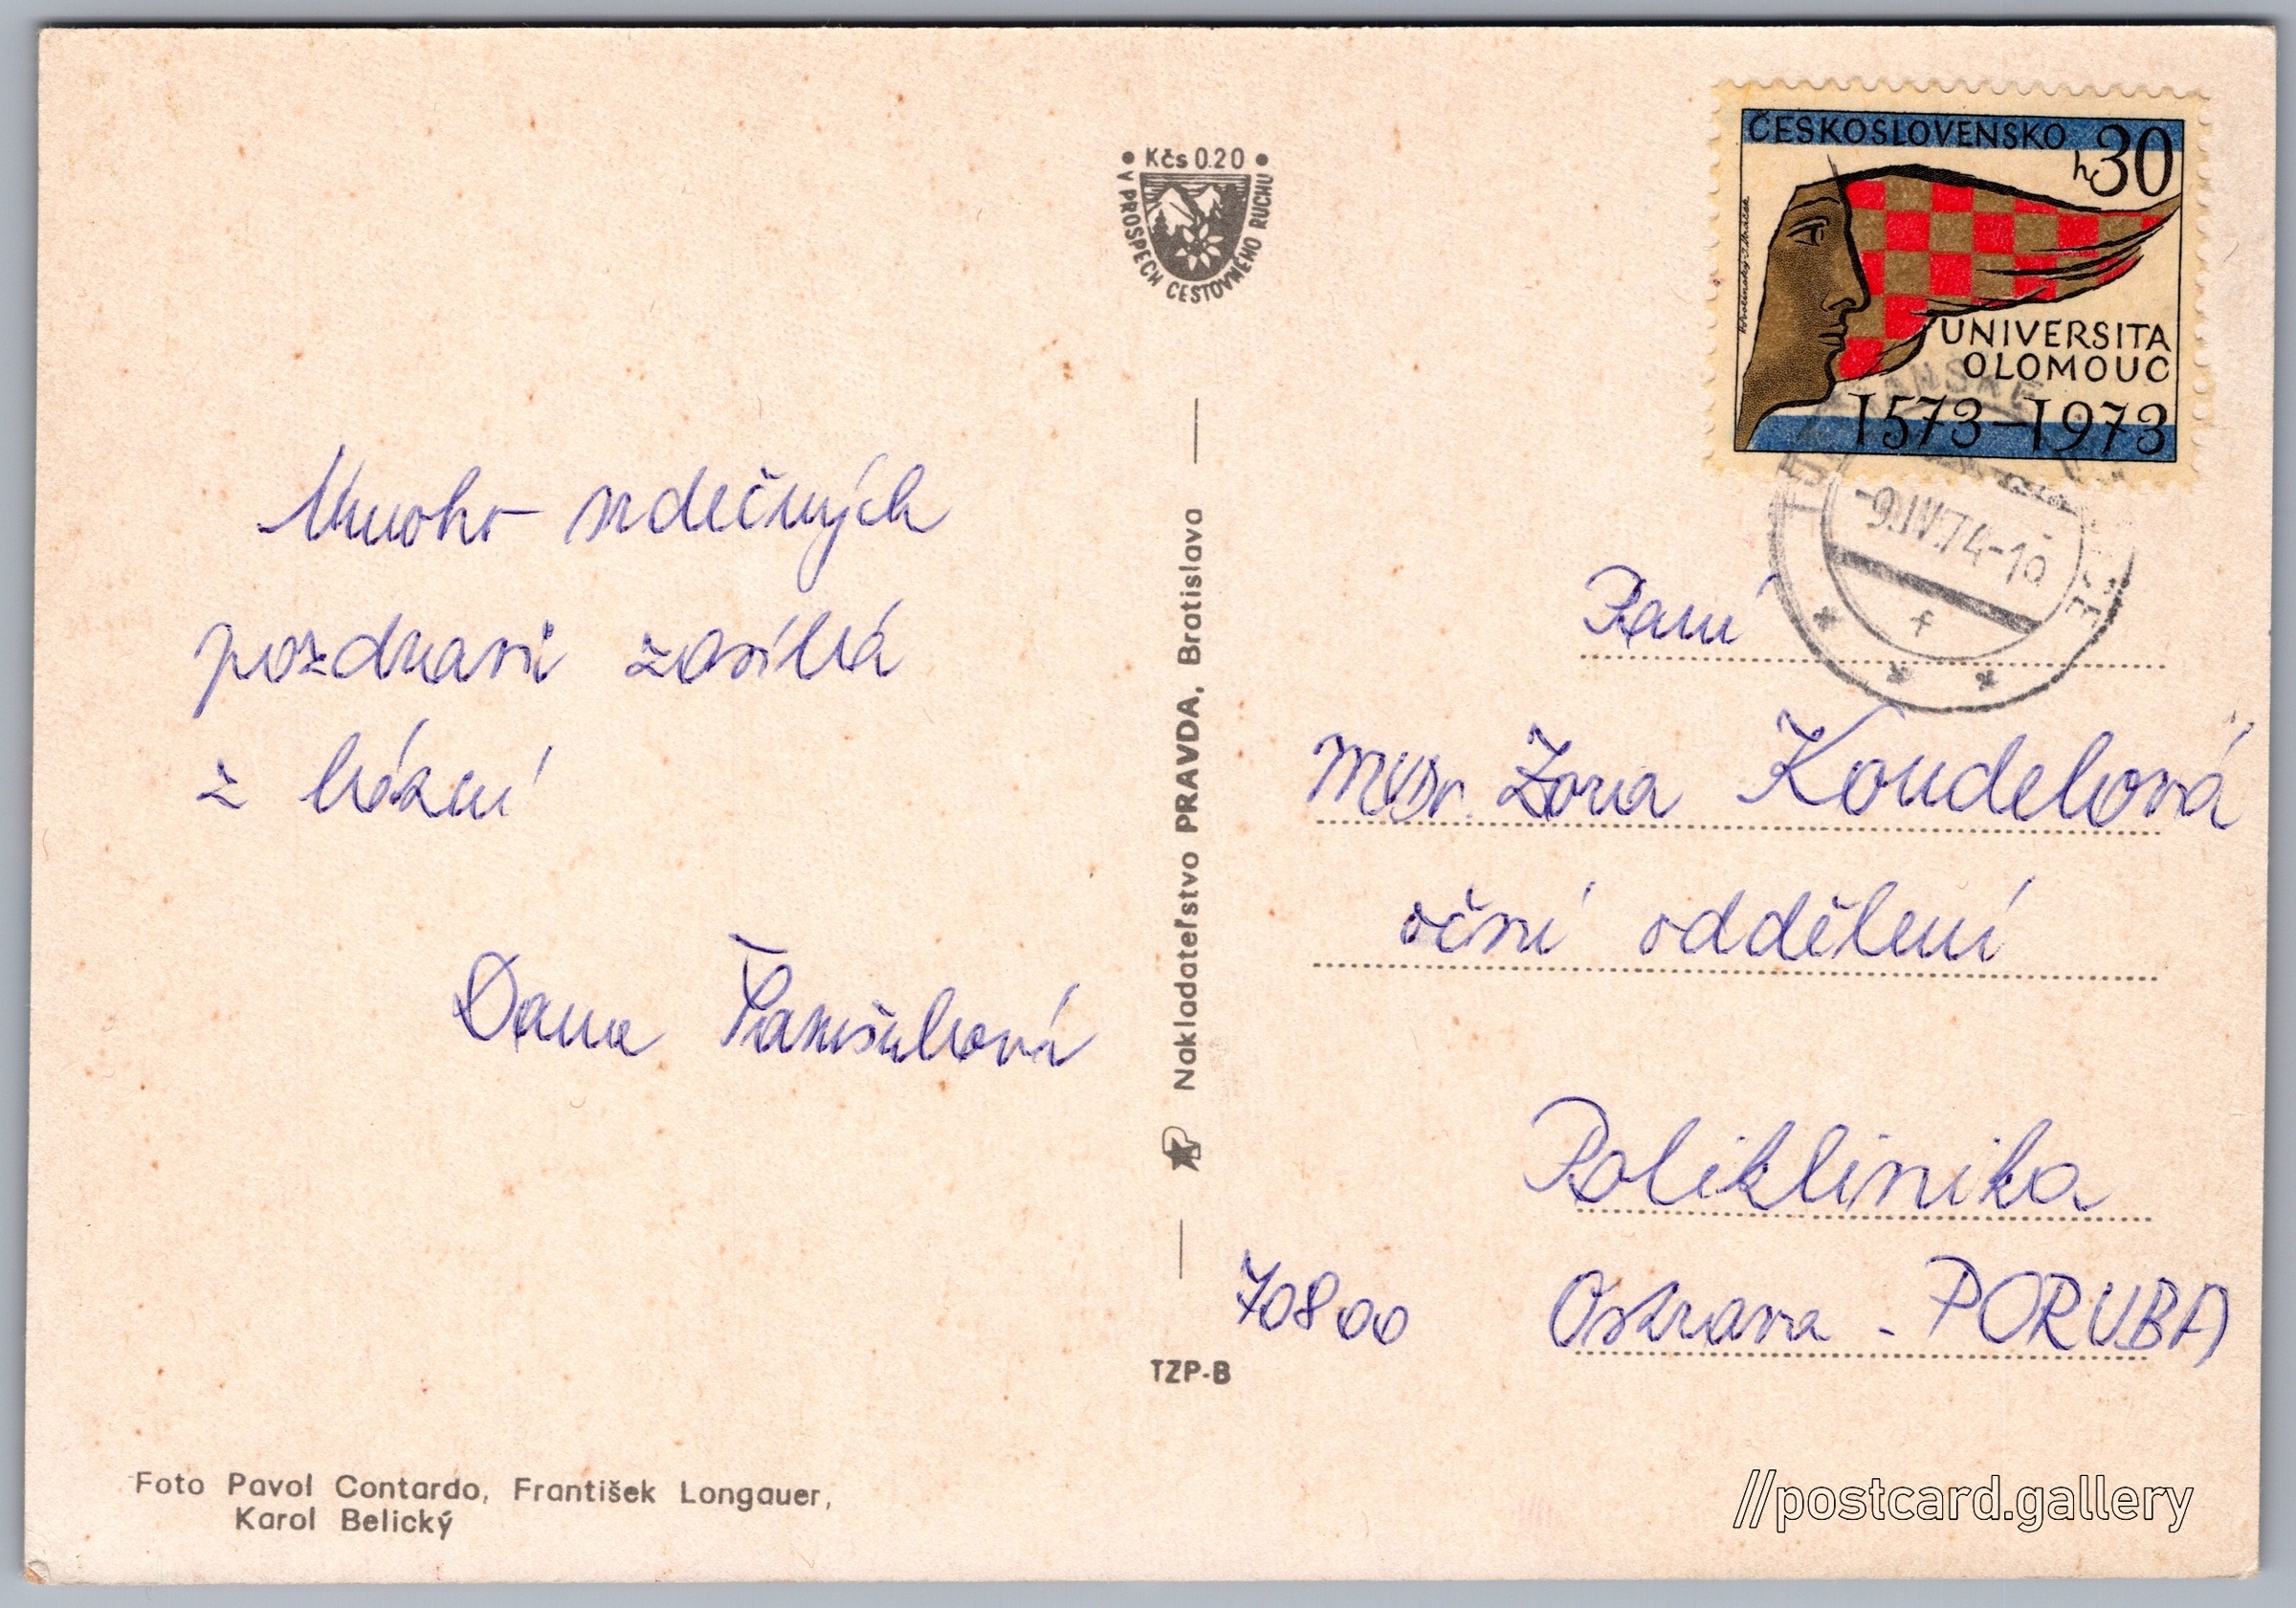 ČESKOSLOVENSKO
h 30
UNIVERSITA
OLOMOUC
1573-1973
-9.IV.74-10
f
• Kčs 0.20 •
V PROSPECH CESTOVNÉHO RUCHU
Mnoho srdečných
pozdravů zasílá
z lázní
Dana
Nakladateľstvo PRAVDA, Bratislava
TZP-B
Paní
MUDr. Zora Koudelová
oční oddělení
Poliklinika
70800 Ostrava - PORUBA
Foto Pavol Contardo, František Longauer,
Karol Belický
//postcard.gallery